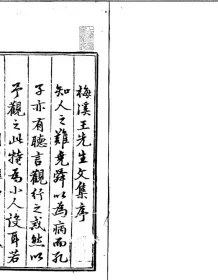 梅溪王先生文集序
知人之難堯舜以為病而孔
子亦有聽言觀行之戒然以
予觀之此特為小人設耳若